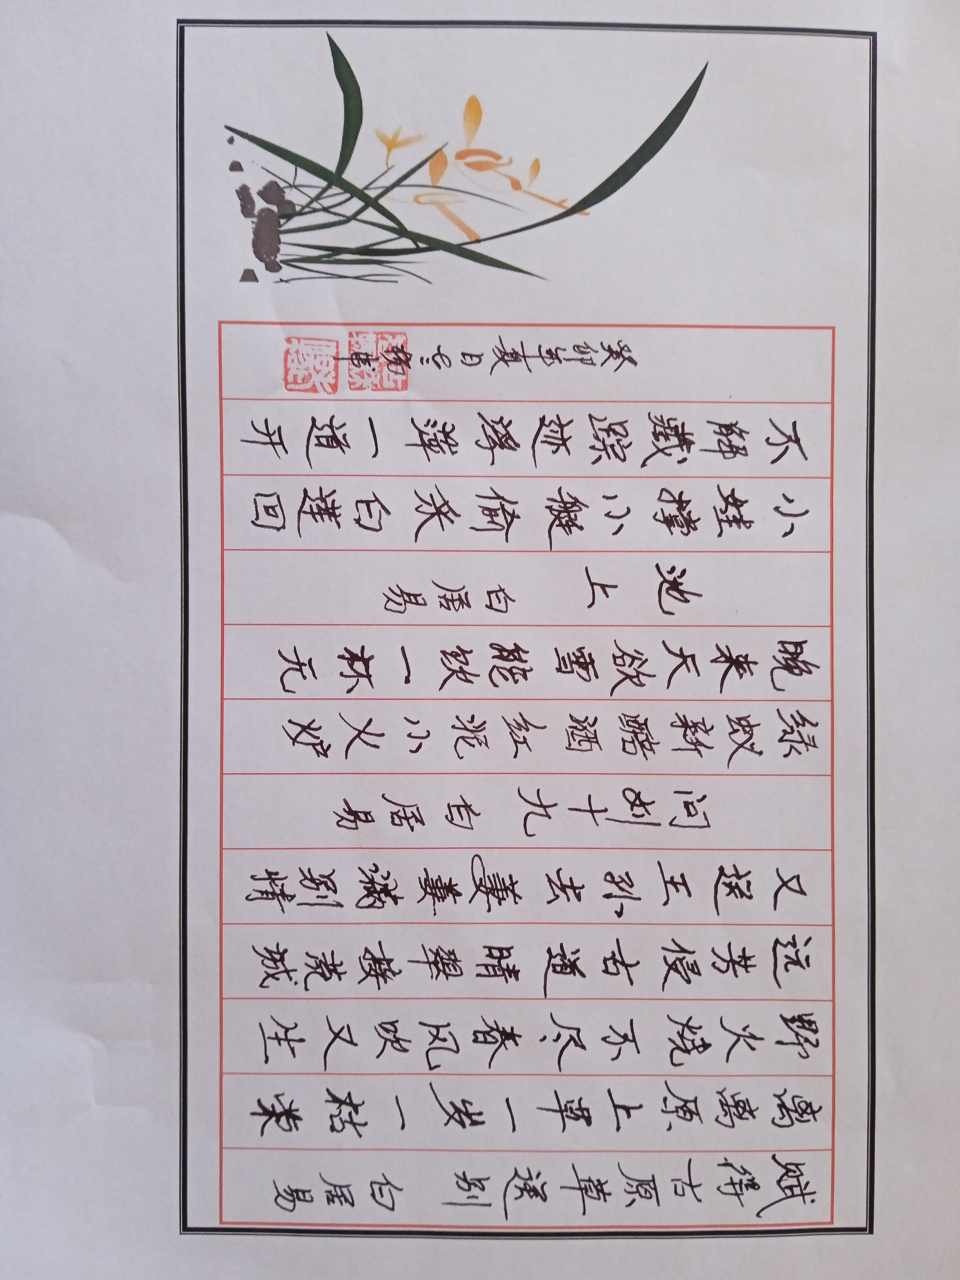 赋得古原草送别 白居易
离离原上草一岁一枯荣
野火烧不尽春风吹又生
远芳侵古道晴翠接荒城
又送王孙去萋萋满别情
问刘十九 白居易
绿蚁新醅酒红泥小火炉
晚来天欲雪能饮一杯无
池上 白居易
小娃撑小艇偷采白莲回
不解藏踪迹浮萍一道开
癸卯年夏日